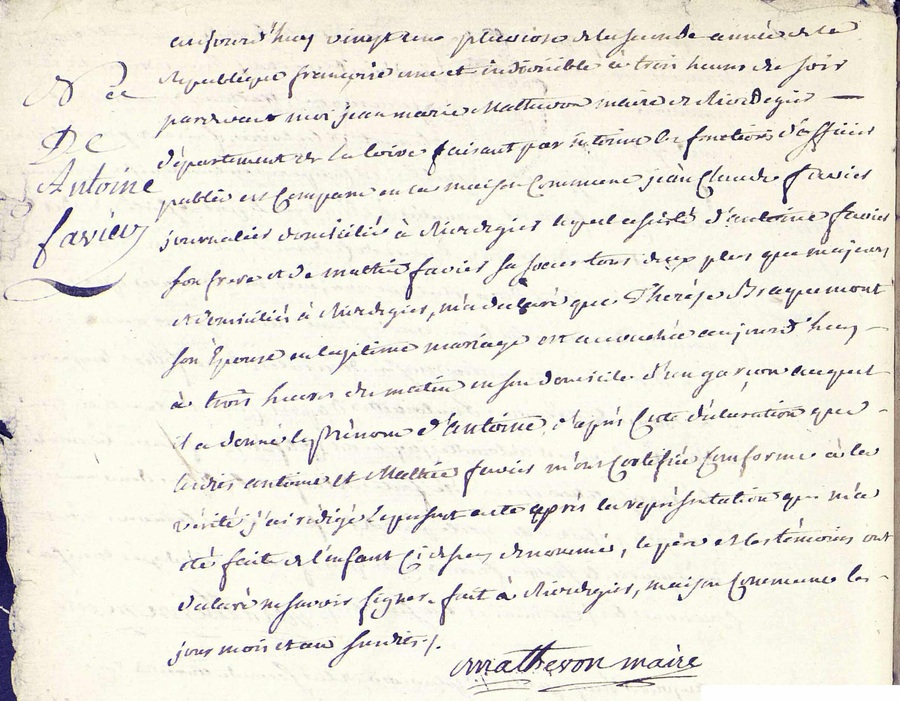 Née
De
Antoine
favier
aujourd'huy vingt un pluviose de la seconde année de la
Republique francoise une et indivisible à trois heures de soir
pardevant moi jean marie Mathevon maire de Rivedegier —
département de la loire faisant par interim les fonctions d'officier
public est Comparu en la maison Commune jean Claude favier
journalier domicilié à Rivedegier lequel assisté d'antoine favier
son frere et de mathie favier sa soeur tous deux plus que majeurs
et domiciliés à Rivedegier, m'a déclaré que Therèse Braquemont
son Epouse en legitime mariage est accouchée aujourd'huy —
à trois heures du matin en son domicile d'un garcon auquel
il a donné le prénom d'antoine, d'après Cette déclaration que -
lesdits antoine et Mathie favier m'ont Certifiée Conforme à la
vérité j'ai rédigé le present acte après la représentation qui m'a
été faite de l'enfant Ci dessus denommé, le père et les témoins ont
déclaré ne savoir signer. fait à Rivedegier, maison Commune les -
jour mois et an susdits /.
Mathevon maire